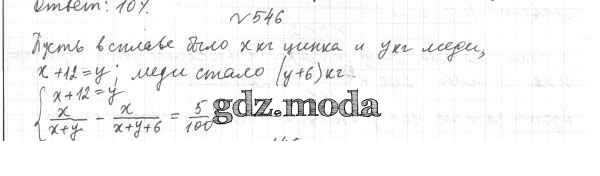 Ответ: 10%.
№546
Пусть в сплаве было x кг цинка и y кг меди,
x+12=y; меди стало (y+6) кг.
{ x+12=y
x/(x+y) - x/(x+y+6) = 5/100
gdz.moda